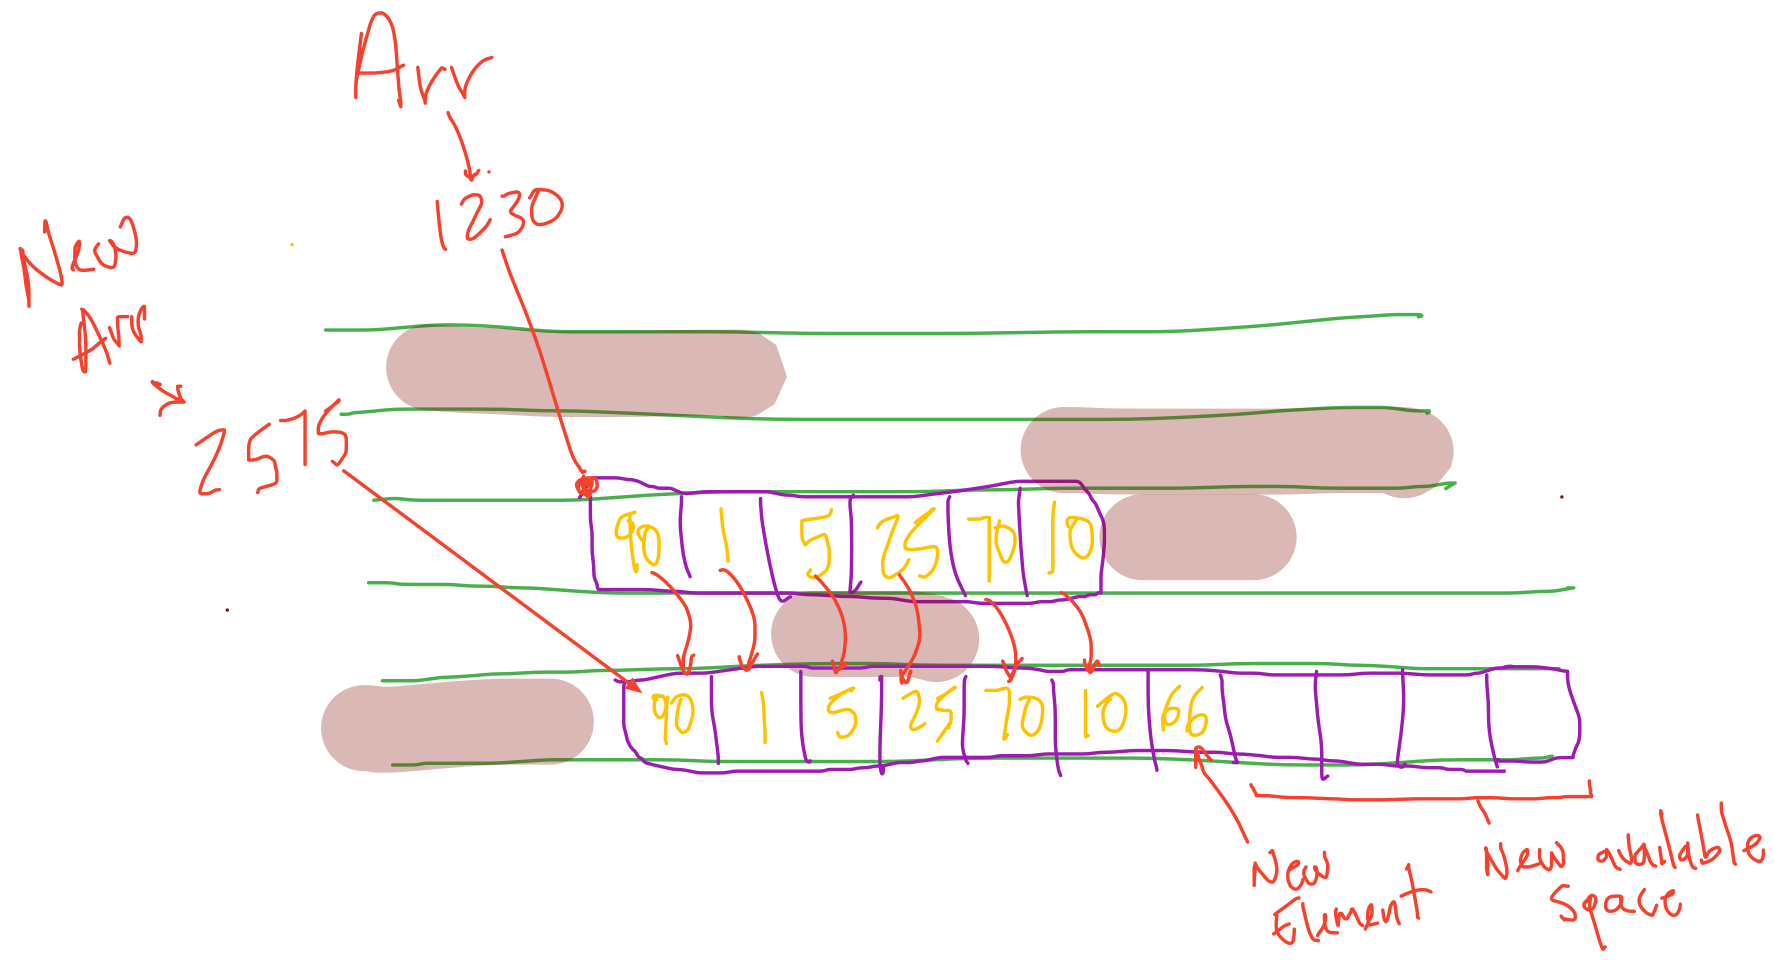 Arr
1230
New
Arr
2575
90 1 5 25 70 10
90 1 5 25 70 10 66
New
Element
New available
Space